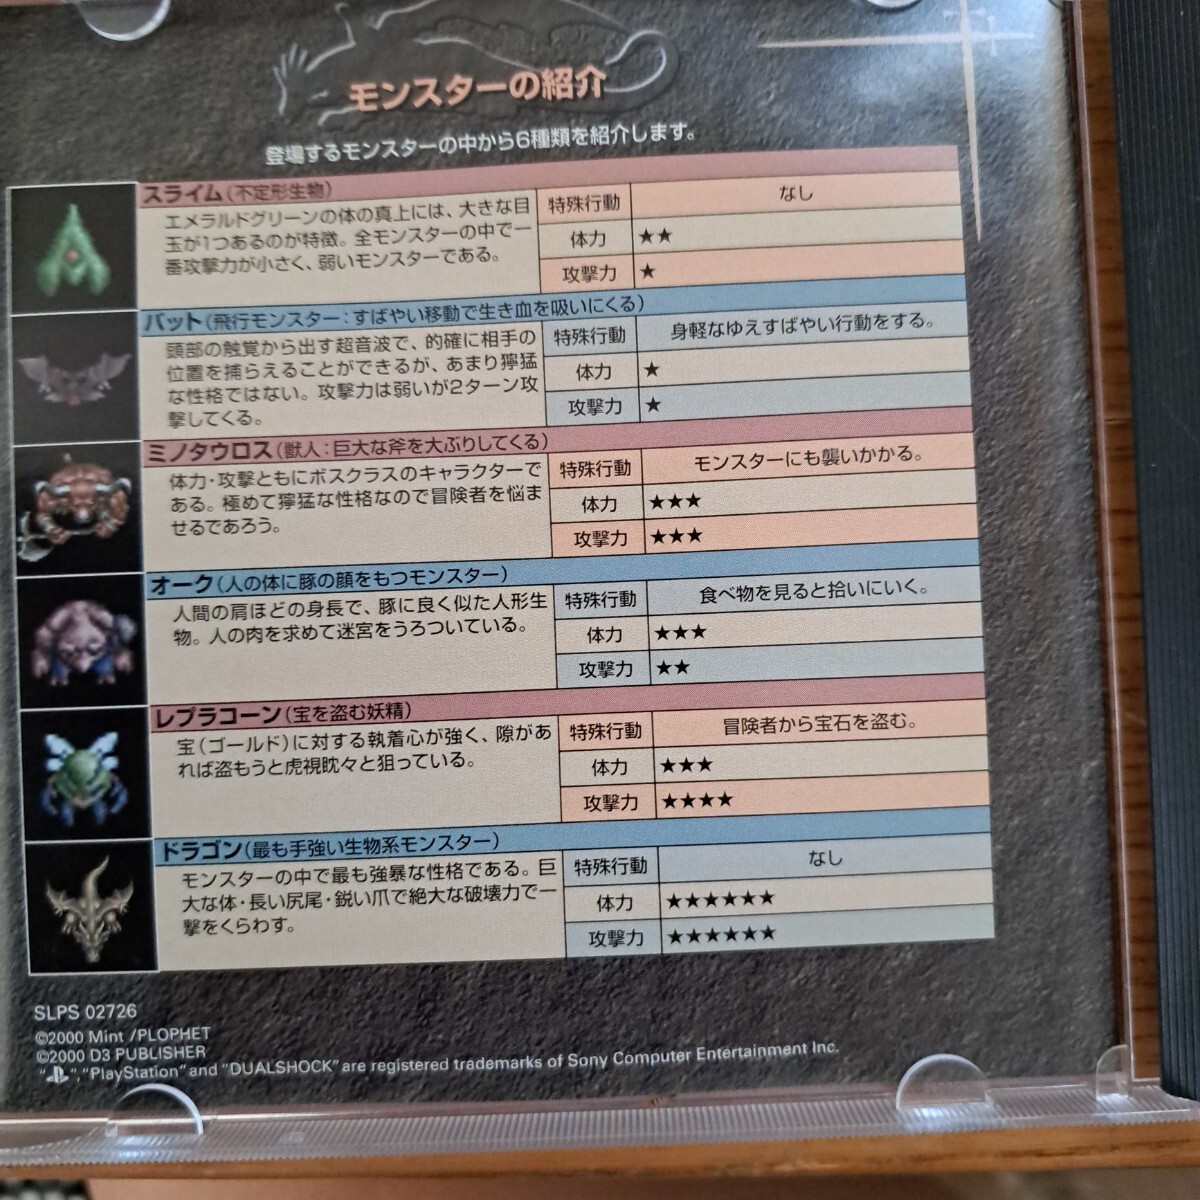 モンスターの紹介
登場するモンスターの中から6種類を紹介します。
スライム(不定形生物)
エメラルドグリーンの体の真上には、大きな目
玉が1つあるのが特徴。全モンスターの中で一
番攻撃力が小さく、弱いモンスターである。
特殊行動 なし
体力 ★★
攻撃力 ★
バット(飛行モンスター:すばやい移動で生き血を吸いにくる)
頭部の触覚から出す超音波で、的確に相手の
位置を捕らえることができるが、あまり獰猛
な性格ではない。攻撃力は弱いが2ターン攻
撃してくる。
特殊行動 身軽なゆえすばやい行動をする。
体力 ★
攻撃力 ★
ミノタウロス(獣人:巨大な斧を大ぶりしてくる)
体力・攻撃ともにボスクラスのキャラクターで
ある。極めて獰猛な性格なので冒険者を悩ま
せるであろう。
特殊行動 モンスターにも襲いかかる。
体力 ★★★
攻撃力 ★★★
オーク(人の体に豚の顔をもつモンスター)
人間の肩ほどの身長で、豚に良く似た人形生
物。人の肉を求めて迷宮をうろついている。
特殊行動 食べ物を見ると拾いにいく。
体力 ★★★
攻撃力 ★★
レプラコーン(宝を盗む妖精)
宝(ゴールド)に対する執着心が強く、隙があ
れば盗もうと虎視眈々と狙っている。
特殊行動 冒険者から宝石を盗む。
体力 ★★★
攻撃力 ★★★★
ドラゴン(最も手強い生物系モンスター)
モンスターの中で最も強暴な性格である。巨
大な体・長い尻尾・鋭い爪で絶大な破壊力で一
撃をくらわす。
特殊行動 なし
体力 ★★★★★★
攻撃力 ★★★★★★
SLPS 02726
©2000 Mint /PLOPHET
©2000 D3 PUBLISHER
" ", "PlayStation" and "DUALSHOCK" are registered trademarks of Sony Computer Entertainment Inc.